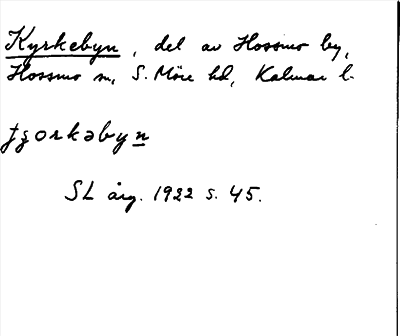 Kyrkebyn, del av Hossmo by,
Hossmo sn, S. Möre hd, Kalmar l.
ʈʂorkəbyn
SL årg. 1922 s. 45.